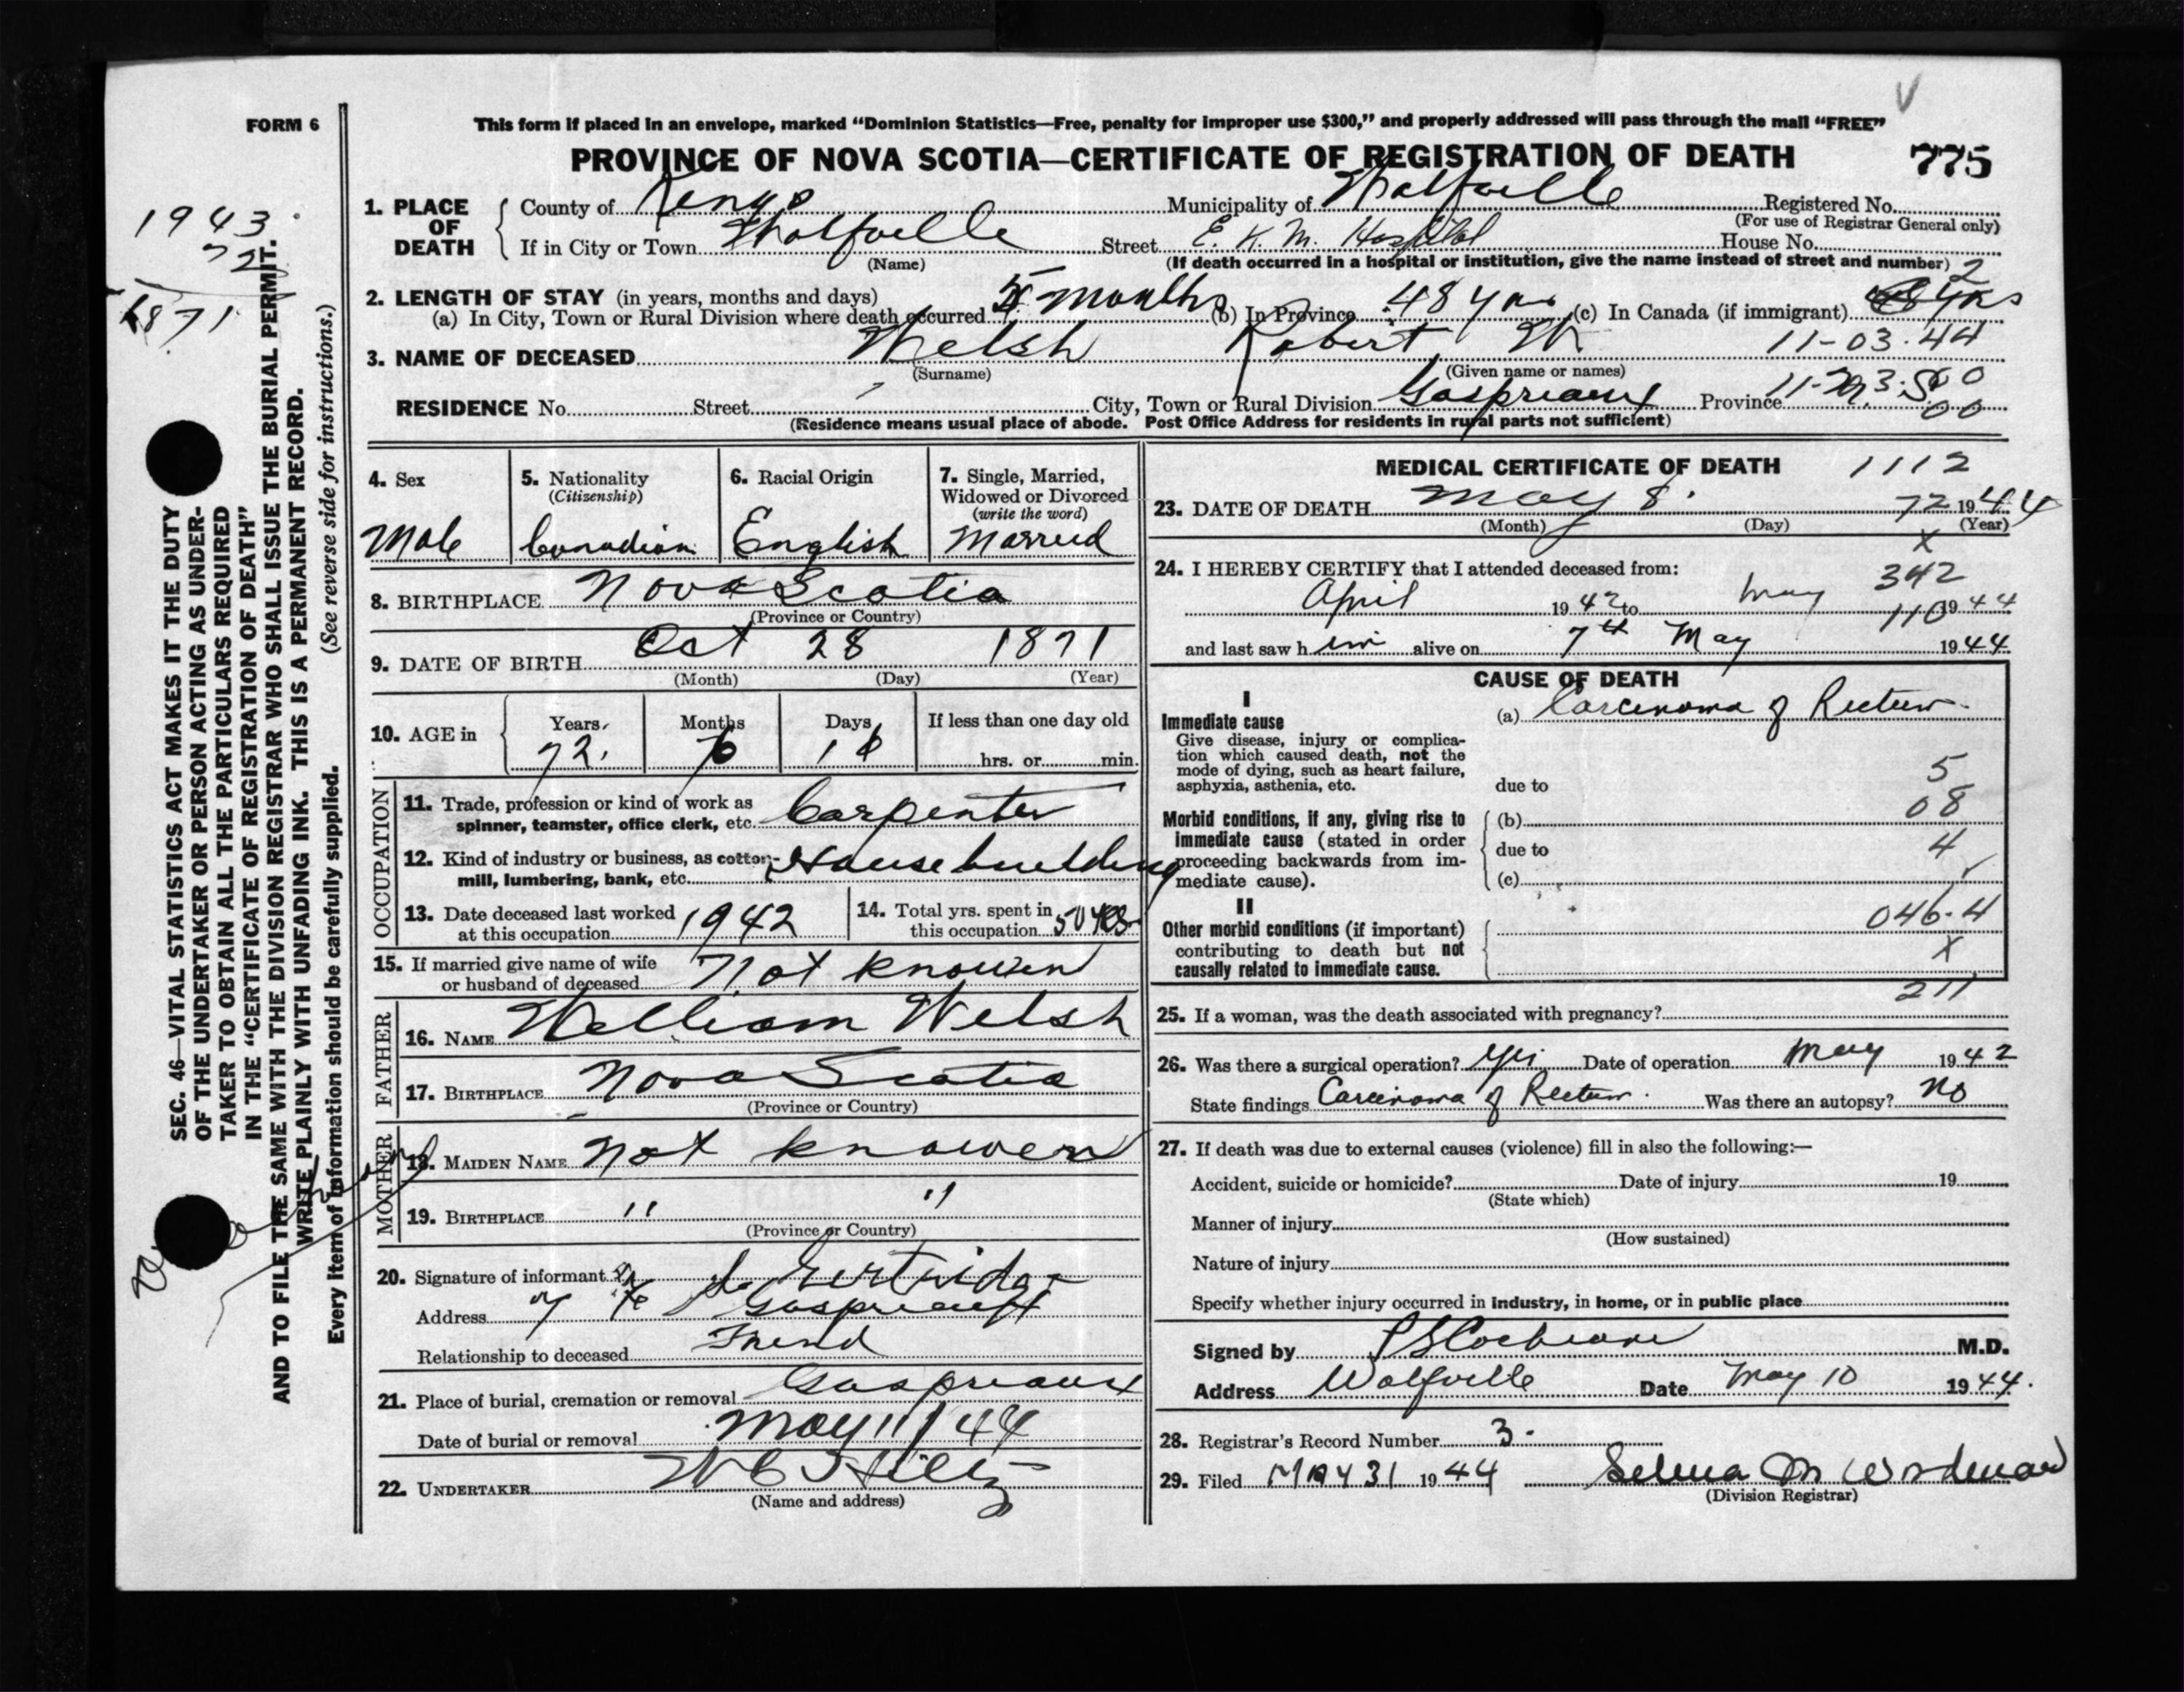 FORM 6
This form if placed in an envelope, marked “Dominion Statistics—Free, penalty for improper use $300,” and properly addressed will pass through the mail “FREE”
PROVINCE OF NOVA SCOTIA—CERTIFICATE OF REGISTRATION OF DEATH 775
1943
72
1871
SEC. 46—VITAL STATISTICS ACT MAKES IT THE DUTY
OF THE UNDERTAKER OR PERSON ACTING AS UNDER-
TAKER TO OBTAIN ALL THE PARTICULARS REQUIRED
IN THE “CERTIFICATE OF REGISTRATION OF DEATH”
AND TO FILE THE SAME WITH THE DIVISION REGISTRAR WHO SHALL ISSUE THE BURIAL PERMIT.
WRITE PLAINLY WITH UNFADING INK. THIS IS A PERMANENT RECORD.
Every item of information should be carefully supplied. (See reverse side for instructions.)
1. PLACE OF DEATH
County of Kings Municipality of Wolfville Registered No.
(For use of Registrar General only)
If in City or Town Wolfville Street E. K. M. Hospital House No.
(Name) (If death occurred in a hospital or institution, give the name instead of street and number) 2
2. LENGTH OF STAY (in years, months and days)
(a) In City, Town or Rural Division where death occurred 5 months (b) In Province 48 yrs (c) In Canada (if immigrant) yrs
3. NAME OF DECEASED Welsh Robert W. 11-03-44
(Surname) (Given name or names)
RESIDENCE No. Street City, Town or Rural Division Gaspreaux Province
00
(Residence means usual place of abode. Post Office Address for residents in rural parts not sufficient)
4. Sex
Male
5. Nationality
(Citizenship)
Canadian
6. Racial Origin
English
7. Single, Married,
Widowed or Divorced
(write the word)
Married
8. BIRTHPLACE Nova Scotia
(Province or Country)
9. DATE OF BIRTH Oct 28 1871
(Month) (Day) (Year)
10. AGE in
Years Months Days If less than one day old
72 6 hrs. or min.
OCCUPATION
11. Trade, profession or kind of work as
spinner, teamster, office clerk, etc. Carpenter
12. Kind of industry or business, as cotton-
mill, lumbering, bank, etc. House building
13. Date deceased last worked
at this occupation 1942
14. Total yrs. spent in
this occupation 50 yrs.
15. If married give name of wife
or husband of deceased Not knowen
FATHER
16. NAME William Welsh
17. BIRTHPLACE Nova Scotia
(Province or Country)
MOTHER
18. MAIDEN NAME not knowen
19. BIRTHPLACE " "
(Province or Country)
20. Signature of informant
Address Gaspreaux
Relationship to deceased Friend
21. Place of burial, cremation or removal Gaspreaux
Date of burial or removal May 11/44
22. UNDERTAKER W C Hiltz
(Name and address)
MEDICAL CERTIFICATE OF DEATH 1112
23. DATE OF DEATH May 8. 72 1944
(Month) (Day) (Year)
x
24. I HEREBY CERTIFY that I attended deceased from: 342
April 1942 to May 110 1944
and last saw him alive on 7th May 1944
CAUSE OF DEATH
I
Immediate cause
Give disease, injury or complica-
tion which caused death, not the
mode of dying, such as heart failure,
asphyxia, asthenia, etc.
(a) Carcinoma of Rectum.
due to
5
08
4
Morbid conditions, if any, giving rise to
immediate cause (stated in order
proceeding backwards from im-
mediate cause).
(b)
due to
(c)
II
Other morbid conditions (if important)
contributing to death but not
causally related to immediate cause.
046.4
x
211
25. If a woman, was the death associated with pregnancy?
26. Was there a surgical operation? Yes Date of operation May 1942
State findings Carcinoma of Rectum. Was there an autopsy? No
27. If death was due to external causes (violence) fill in also the following:—
Accident, suicide or homicide? Date of injury 19
(State which)
Manner of injury
(How sustained)
Nature of injury
Specify whether injury occurred in industry, in home, or in public place
Signed by P S Cochrane M.D.
Address Wolfville Date May 10 1944.
28. Registrar's Record Number 3.
29. Filed MAY 31 1944 Selena M Woodman
(Division Registrar)